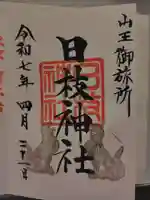 山王御旅所
日枝神社
令和七年四月二十一日